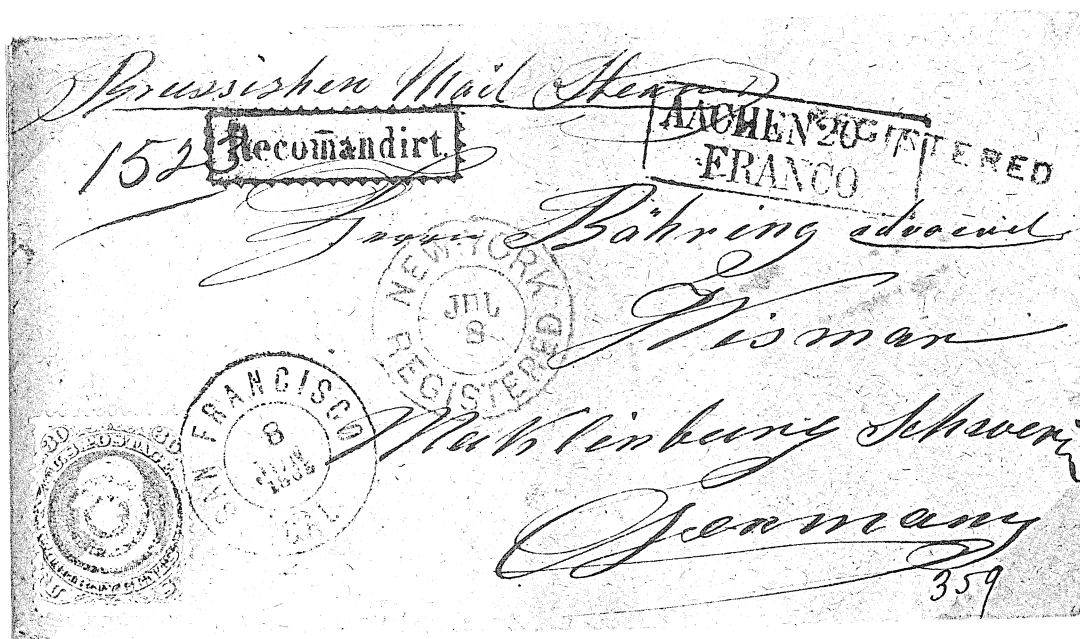 Prussishen Mail
1523
Recom̄andirt.
AACHEN 20
FRANCO
REGISTERED
Herrn Bähring
Wismar
Maklinburg Schwerin
Germany
359
NEW YORK
JUL
8
REGISTERED
SAN FRANCISCO
8
CAL
30 30
U.S. POSTAGE